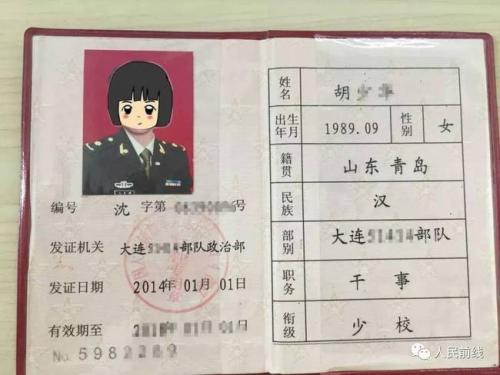 编号 沈 字第 号
发证机关 大连 部队政治部
发证日期 2014年01月01日
有效期至 01月01日
No. 598
姓名 胡
出生年月 1989.09 性别 女
籍贯 山东青岛
民族 汉
部别 大连 部队
职务 干事
衔级 少校
人民前线